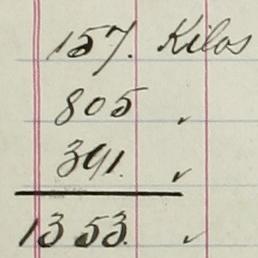 157. Kilos
805 "
391. "
1353. "